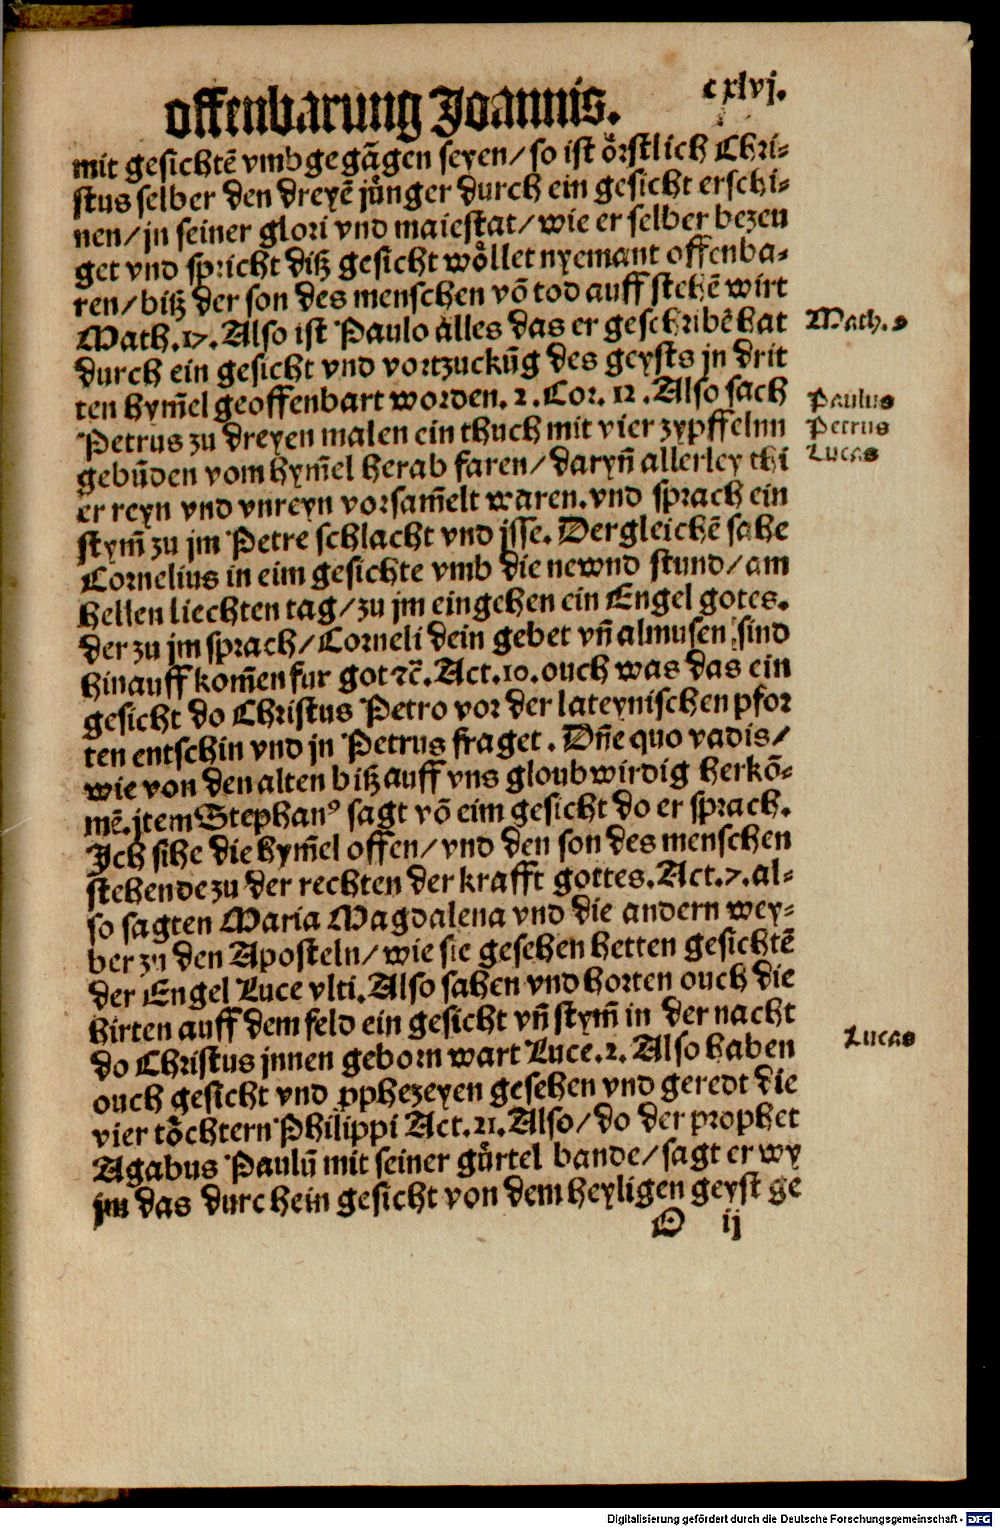 offenbarung Joannis.
cxlvj.
mit gesichtē vmbgegāgen seyen/so ist örstlich Chri-
stus selber den dreyē jünger durch ein gesicht erschi-
nen/jn seiner glori vnd maiestat/wie er selber bezeu
get vnd spricht ditz gesicht wöllet nyemant offenba-
ren/bitz der son des menschen vō tod auff stehē wirt
Math.17. Also ist Paulo alles das er geschribē hat
durch ein gesicht vnd vortzuckūg des geysts jn drit
ten hym̄el geoffenbart worden. 2. Cor. 12. Also sach
Petrus zu dreyen malen ein thuch mit vier zypffelnn
gebūden vom hym̄el herab faren/daryn̄ allerley thi
er reyn vnd vnreyn vorsam̄elt waren. vnd sprach ein
stym̄ zu jm Petre schlacht vnd jsse. Dergleichē sahe
Cornelius in eim gesichte vmb die newnd stund/am
hellen liechten tag/zu jm eingehen ein Engel gotes.
der zu jm sprach/Corneli dein gebet vn̄ almusen sind
hinauff kom̄en fur got ⁊c̄. Act.10. ouch was das ein
gesicht do Christus Petro vor der lateynischen pfor
ten entschin vnd jn Petrus fraget. Dn̄e quo vadis/
wie von den alten bitz auff vns gloubwirdig herkō-
mē. jtem Stephanꝰ sagt vō eim gesicht do er sprach.
Jch sihe die hym̄el offen/vnd den son des menschen
stehende zu der rechten der krafft gottes. Act.7. al-
so sagten Maria Magdalena vnd die andern wey-
ber zu den Aposteln/wie sie gesehen hetten gesichtē
der Engel Luce vlti. Also sahen vnd horten ouch die
hirten auff dem feld ein gesicht vn̄ stym̄ in der nacht
do Christus jnnen geborn wart Luce.2. Also haben
ouch gesicht vnd ꝓphezeyen gesehen vnd geredt die
vier töchtern Philippi Act.21. Also/do der prophet
Agabus Paulū mit seiner gürtel bande/sagt er wy
jm das durch ein gesicht von dem heyligen geyst ge
O ij
Math.
Paulus
Petrus
Lucas
Lucas
Digitalisierung gefördert durch die Deutsche Forschungsgemeinschaft - DFG